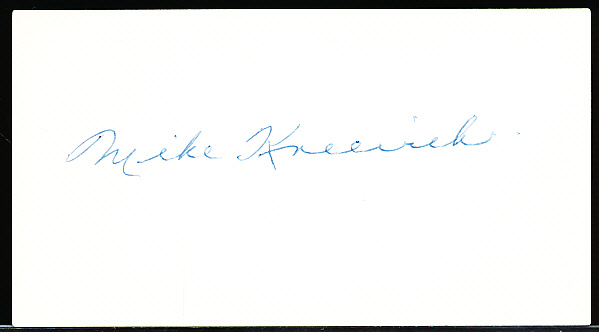 Mike Kreevich